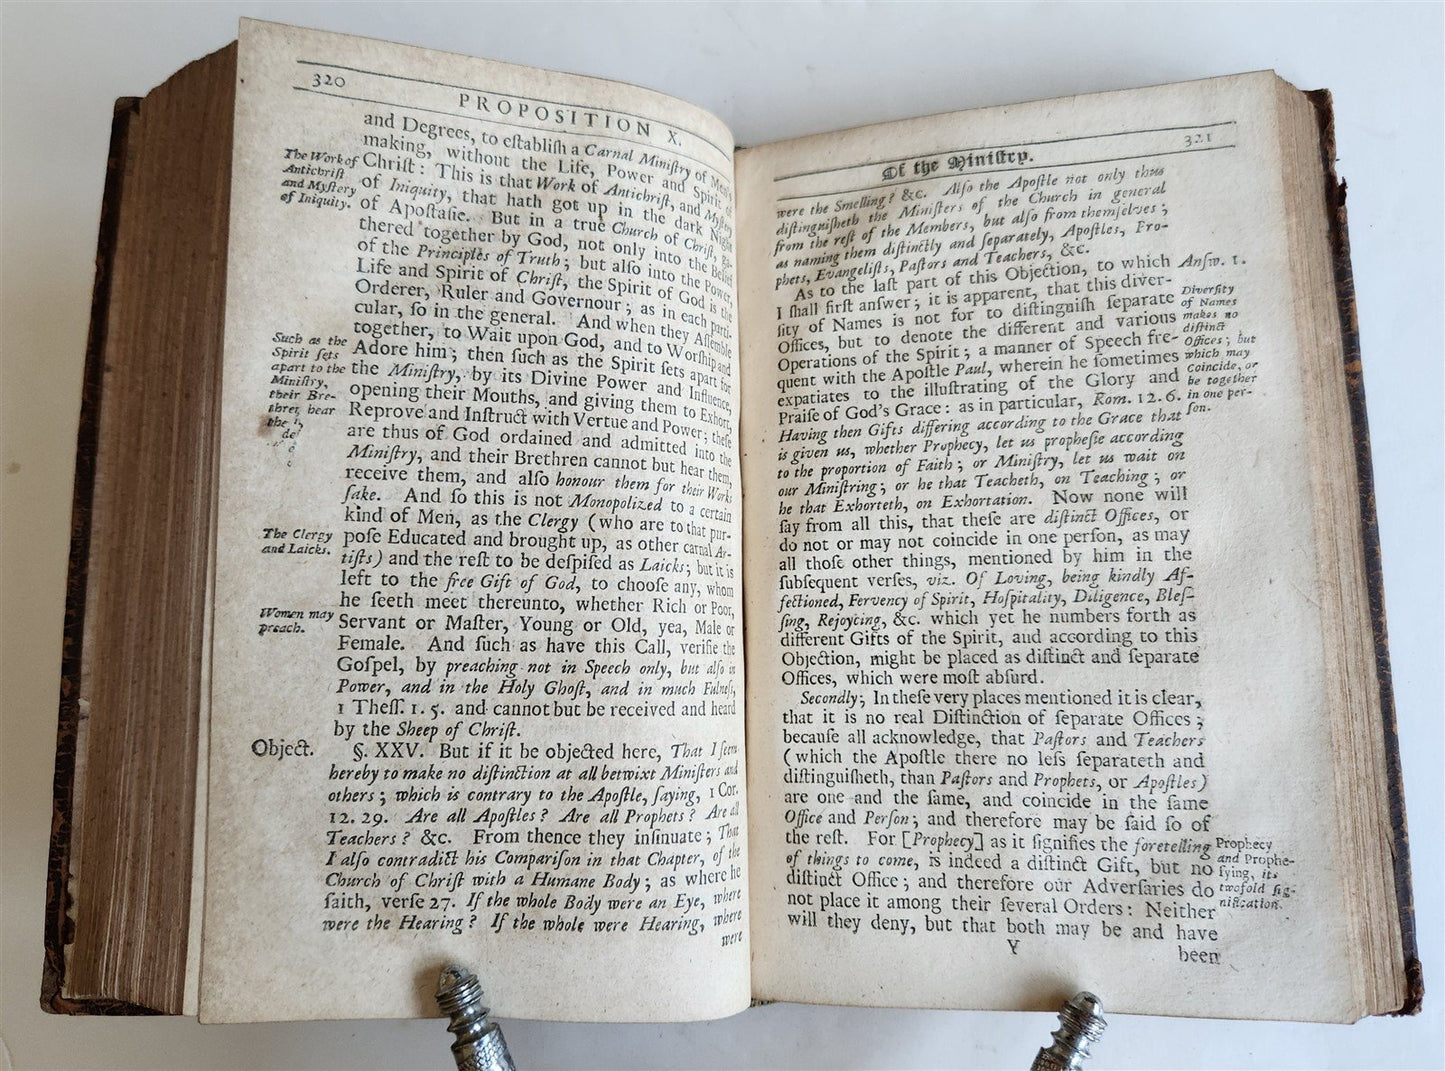 320
PROPOSITION X.
and Degrees, to eſtabliſh a Carnal Miniſtry of Men's
making, without the Life, Power and Spirit of
Chriſt: This is that Work of Antichriſt, and Myſtery
of Iniquity, that hath got up in the dark Night
of Apoſtaſie. But in a true Church of Chriſt, ga-
thered together by God, not only into the Belief
of the Principles of Truth; but alſo into the Power,
Life and Spirit of Chriſt, the Spirit of God is the
Orderer, Ruler and Governour; as in each parti-
cular, ſo in the general. And when they Aſſemble
together, to Wait upon God, and to Worſhip and
Adore him; then ſuch as the Spirit ſets apart for
the Miniſtry, by its Divine Power and Influence,
opening their Mouths, and giving them to Exhort,
Reprove and Inſtruct with Vertue and Power; theſe
are thus of God ordained and admitted into the
Miniſtry, and their Brethren cannot but hear them,
receive them, and alſo honour them for their Works
ſake. And ſo this is not Monopolized to a certain
kind of Men, as the Clergy (who are to that pur-
poſe Educated and brought up, as other carnal Ar-
tiſts) and the reſt to be deſpiſed as Laicks; but it is
left to the free Gift of God, to chooſe any, whom
he ſeeth meet thereunto, whether Rich or Poor,
Servant or Maſter, Young or Old, yea, Male or
Female. And ſuch as have this Call, verifie the
Goſpel, by preaching not in Speech only, but alſo in
Power, and in the Holy Ghoſt, and in much Fulneſs,
1 Theſſ. 1. 5. and cannot but be received and heard
by the Sheep of Chriſt.
§. XXV. But if it be objected here, That I ſeem
hereby to make no diſtinction at all betwixt Miniſters and
others; which is contrary to the Apoſtle, ſaying, 1 Cor.
12. 29. Are all Apoſtles? Are all Prophets? Are all
Teachers? &c. From thence they inſinuate; That
I alſo contradict his Compariſon in that Chapter, of the
Church of Chriſt with a Humane Body; as where he
ſaith, verſe 27. If the whole Body were an Eye, where
were the Hearing? If the whole were Hearing, where
were
The Work of
Antichriſt
and Myſtery
of Iniquity.
Such as the
Spirit ſets
apart to the
Miniſtry,
their Bre-
thren hear
The Clergy
and Laicks.
Women may
preach.
Object.
Of the Miniſtry.
321
were the Smelling? &c. Alſo the Apoſtle not only thus
diſtinguiſheth the Miniſters of the Church in general
from the reſt of the Members, but alſo from themſelves;
as naming them diſtinctly and ſeparately, Apoſtles, Pro-
phets, Evangeliſts, Paſtors and Teachers, &c.
As to the laſt part of this Objection, to which
I ſhall firſt anſwer; it is apparent, that this diver-
ſity of Names is not for to diſtinguiſh ſeparate
Offices, but to denote the different and various
Operations of the Spirit; a manner of Speech fre-
quent with the Apoſtle Paul, wherein he ſometimes
expatiates to the illuſtrating of the Glory and
Praiſe of God's Grace: as in particular, Rom. 12. 6.
Having then Gifts differing according to the Grace that
is given us, whether Prophecy, let us propheſie according
to the proportion of Faith; or Miniſtry, let us wait on
our Miniſtring; or he that Teacheth, on Teaching; or
he that Exhorteth, on Exhortation. Now none will
ſay from all this, that theſe are diſtinct Offices, or
do not or may not coincide in one perſon, as may
all thoſe other things, mentioned by him in the
ſubſequent verſes, viz. Of Loving, being kindly Af-
fectioned, Fervency of Spirit, Hoſpitality, Diligence, Bleſ-
ſing, Rejoycing, &c. which yet he numbers forth as
different Gifts of the Spirit, and according to this
Objection, might be placed as diſtinct and ſeparate
Offices, which were moſt abſurd.
Secondly; In theſe very places mentioned it is clear,
that it is no real Diſtinction of ſeparate Offices;
becauſe all acknowledge, that Paſtors and Teachers
(which the Apoſtle there no leſs ſeparateth and
diſtinguiſheth, than Paſtors and Prophets, or Apoſtles)
are one and the ſame, and coincide in the ſame
Office and Perſon; and therefore may be ſaid ſo of
the reſt. For [Prophecy] as it ſignifies the foretelling
of things to come, is indeed a diſtinct Gift, but no
diſtinct Office; and therefore our Adverſaries do
not place it among their ſeveral Orders: Neither
will they deny, but that both may be and have
Y
been
Anſw. 1.
Diverſity
of Names
makes no
diſtinct
Offices; but
which may
coincide, or
be together
in one per-
ſon.
Prophecy
and Prophe-
ſying, its
twofold ſig-
nification.